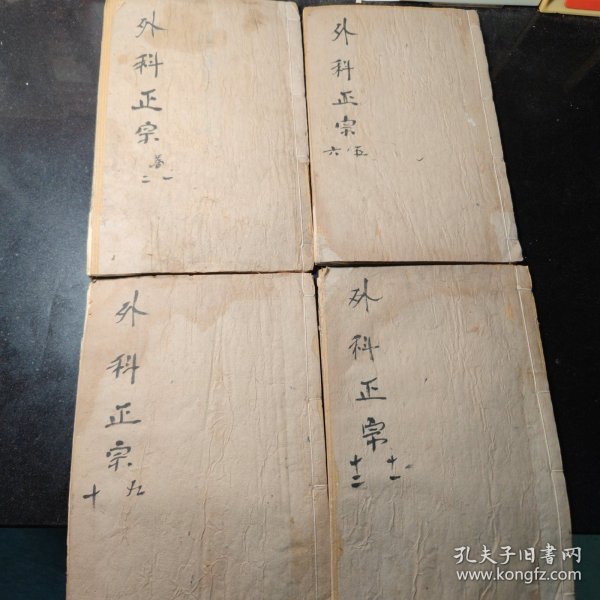 外科正宗
卷一
二
外科正宗
五
六
外科正宗
九
十
外科正宗
十一
十二
孔夫子旧书网
www.kongfz.com